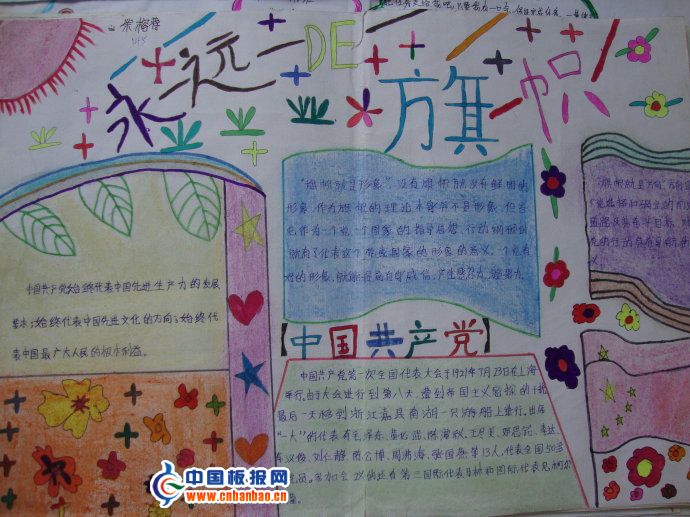 永远DE
旗帜
中国共产党始终代表中国先进生产力的发展
要求;始终代表中国先进文化的方向;始终代
表中国最广大人民的根本利益。
"旗帜就是形象"没有旗帜就没有鲜明的
形象。作为旗帜的理论本身并不是形象,但当
它作为一个党一个国家的指导思想、行动纲领时
就有了代表这个党或国家的形象的意义。一个党有
好的形象,就能提高自身威信,产生感召力、凝聚力
【中国共产党】
中国共产党第一次全国代表大会于1921年7月23日在上海
举行。由于大会进行到第八天,遭到帝国主义密探的干扰
最后一天移到浙江嘉兴南湖一只游船上举行。出席
"一大"的代表有毛泽东、董必武、陈潭秋、王尽美、邓恩铭、李达、
李汉俊、刘仁静、陈公博、周佛海、张国焘等13人,代表全国50多
党员。参加会议的还有第三国际代表马林和国际代表尼柯尔
"旗帜就是方向"
中国板报网
www.cnbanbao.cn